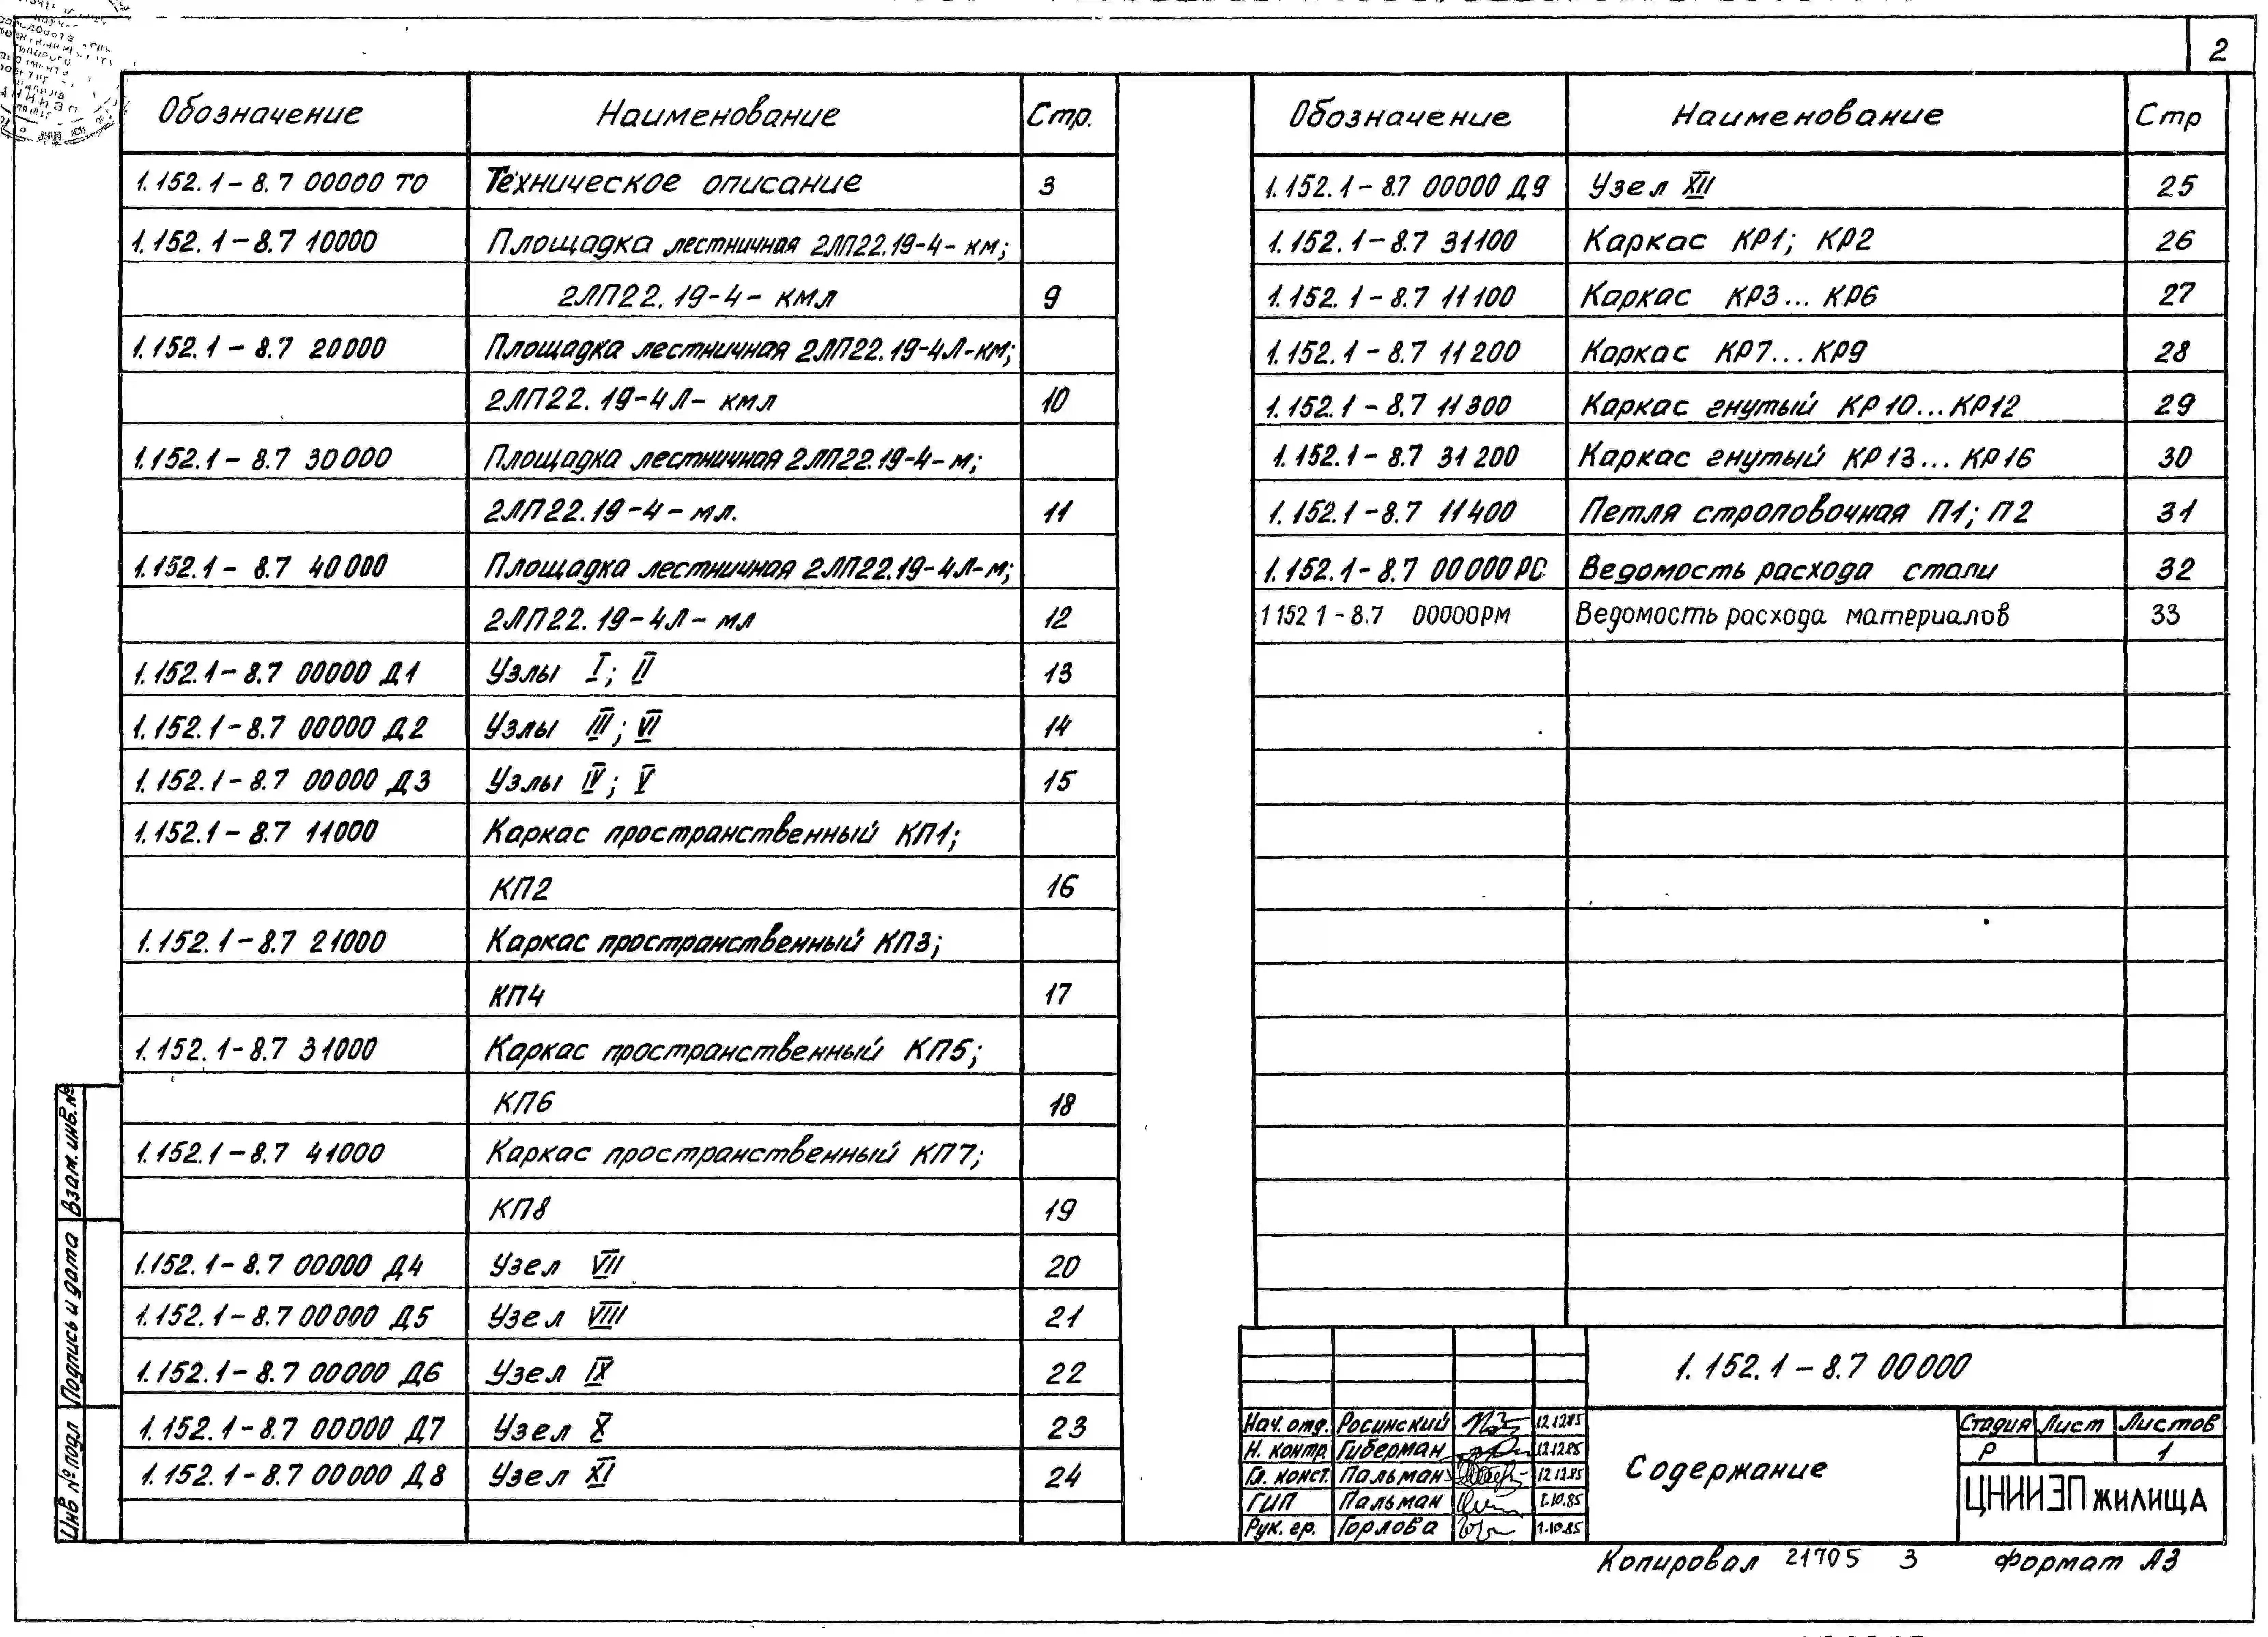 2
Обозначение Наименование Стр.
1.152.1-8.7 00000 ТО Техническое описание 3
1.152.1-8.7 10000 Площадка лестничная 2ЛП22.19-4-км;
2ЛП22.19-4-кмл 9
1.152.1-8.7 20000 Площадка лестничная 2ЛП22.19-4Л-км;
2ЛП22.19-4Л-кмл 10
1.152.1-8.7 30000 Площадка лестничная 2ЛП22.19-4-м;
2ЛП22.19-4-мл. 11
1.152.1-8.7 40000 Площадка лестничная 2ЛП22.19-4Л-м;
2ЛП22.19-4Л-мл 12
1.152.1-8.7 00000 Д1 Узлы I; II 13
1.152.1-8.7 00000 Д2 Узлы III; VI 14
1.152.1-8.7 00000 Д3 Узлы IV; V 15
1.152.1-8.7 11000 Каркас пространственный КП1;
КП2 16
1.152.1-8.7 21000 Каркас пространственный КП3;
КП4 17
1.152.1-8.7 31000 Каркас пространственный КП5;
КП6 18
1.152.1-8.7 41000 Каркас пространственный КП7;
КП8 19
1.152.1-8.7 00000 Д4 Узел VII 20
1.152.1-8.7 00000 Д5 Узел VIII 21
1.152.1-8.7 00000 Д6 Узел IX 22
1.152.1-8.7 00000 Д7 Узел X 23
1.152.1-8.7 00000 Д8 Узел XI 24
Обозначение Наименование Стр
1.152.1-8.7 00000 Д9 Узел XII 25
1.152.1-8.7 31100 Каркас КР1; КР2 26
1.152.1-8.7 11100 Каркас КР3...КР6 27
1.152.1-8.7 11200 Каркас КР7...КР9 28
1.152.1-8.7 11300 Каркас гнутый КР10...КР12 29
1.152.1-8.7 31200 Каркас гнутый КР13...КР16 30
1.152.1-8.7 11400 Петля строповочная П1; П2 31
1.152.1-8.7 00000РС Ведомость расхода стали 32
1 152 1-8.7 00000РМ Ведомость расхода материалов 33
Взам. инв. №
Подпись и дата
Инв № подл
1.152.1-8.7 00000
Нач. отд. Росинский 12.12.85
Н. контр. Гиберман 12.12.85
Гл. конст. Пальман 12.12.85
ГИП Пальман 1.10.85
Рук. гр. Горлова 1.10.85
Содержание
Стадия Лист Листов
Р 1
ЦНИИЭП жилища
Копировал 21705 3 формат А3